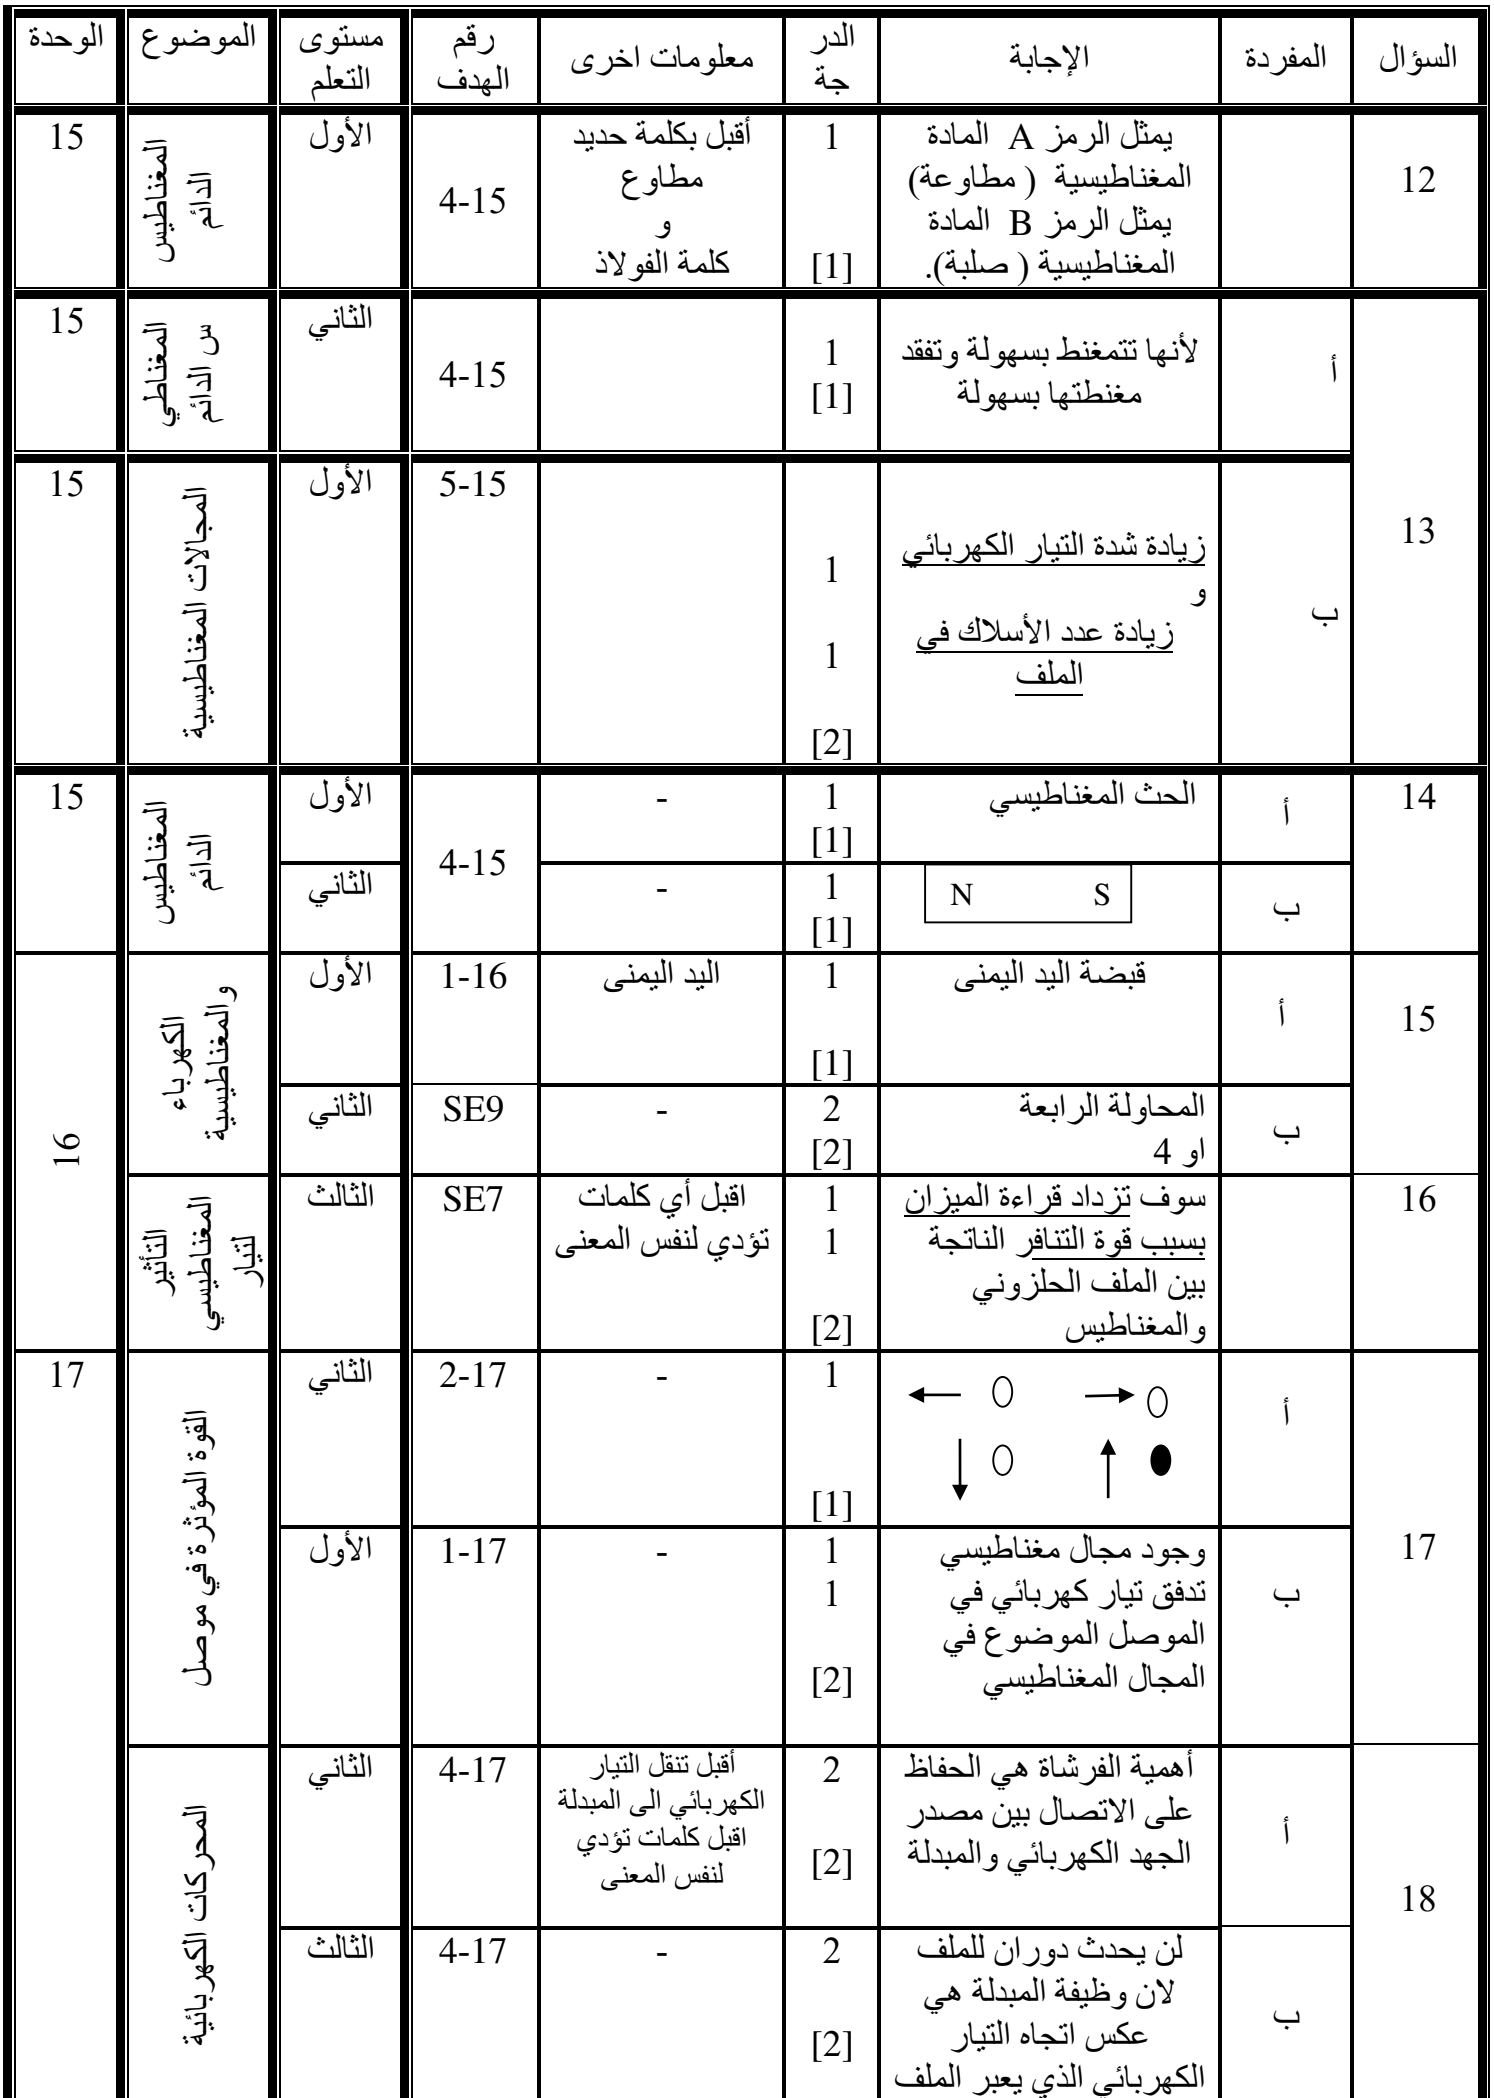 السؤال المفردة الإجابة الدر جة معلومات اخرى رقم الهدف مستوى التعلم الموضوع الوحدة
12
يمثل الرمز A المادة
المغناطيسية ( مطاوعة)
يمثل الرمز B المادة
المغناطيسية ( صلبة).
1
[1]
أقبل بكلمة حديد
مطاوع
و
كلمة الفولاذ
4-15
الأول
المغناطيس
الدائم
15
13
أ
لأنها تتمغنط بسهولة وتفقد
مغنطتها بسهولة
1
[1]
4-15
الثاني
المغناطي
س الدائم
15
ب
زيادة شدة التيار الكهربائي
و
زيادة عدد الأسلاك في
الملف
1
1
[2]
5-15
الأول
المجالات المغناطيسية
15
14
أ
الحث المغناطيسي
1
[1]
-
4-15
الأول
المغناطيس
الدائم
15
ب
N S
1
[1]
-
الثاني
15
أ
قبضة اليد اليمنى
1
[1]
اليد اليمنى
1-16
الأول
الكهرباء
والمغناطيسية
16
ب
المحاولة الرابعة
او 4
2
[2]
-
SE9
الثاني
16
سوف تزداد قراءة الميزان
بسبب قوة التنافر الناتجة
بين الملف الحلزوني
والمغناطيس
1
1
[2]
اقبل أي كلمات
تؤدي لنفس المعنى
SE7
الثالث
التأثير
المغناطيسي
لتيار
17
أ
1
[1]
-
2-17
الثاني
القوة المؤثرة في موصل
17
ب
وجود مجال مغناطيسي
تدفق تيار كهربائي في
الموصل الموضوع في
المجال المغناطيسي
1
1
[2]
-
1-17
الأول
18
أ
أهمية الفرشاة هي الحفاظ
على الاتصال بين مصدر
الجهد الكهربائي والمبدلة
2
[2]
أقبل تنقل التيار
الكهربائي الى المبدلة
اقبل كلمات تؤدي
لنفس المعنى
4-17
الثاني
المحركات الكهربائية
ب
لن يحدث دوران للملف
لان وظيفة المبدلة هي
عكس اتجاه التيار
الكهربائي الذي يعبر الملف
2
[2]
-
4-17
الثالث